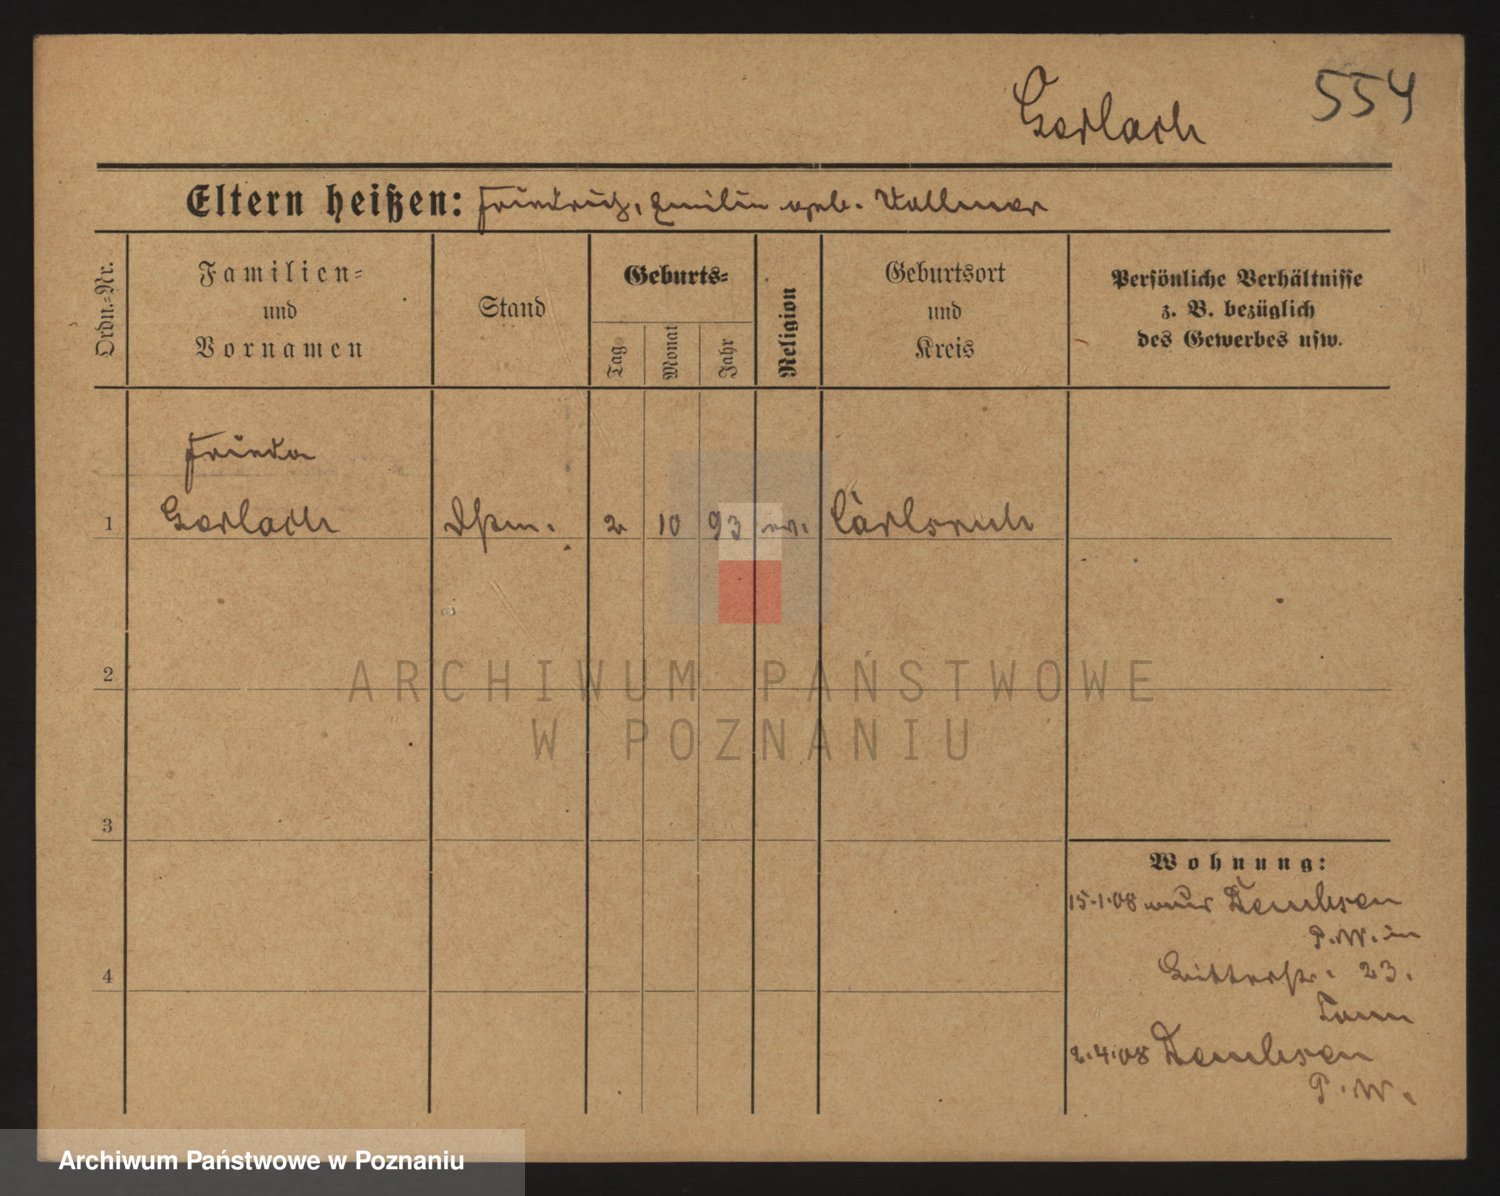 554
Gerlach
Eltern heißen: Friedrich, Emilie geb. Vollmer
Ordn.-Nr.
Familien-
und
Vornamen
Stand
Geburts-
Tag
Monat
Jahr
Religion
Geburtsort
und
Kreis
Persönliche Verhältnisse
z. B. bezüglich
des Gewerbes usw.
Frieda
1 Gerlach 2 10 93 ev. Carlsruh
2
ARCHIWUM PAŃSTWOWE
W POZNANIU
3
Wohnung:
15.1.08 Dembsen
P.W. in
Ritterstr. 23.
4
2.4.08 Dembsen
P.W.
Archiwum Państwowe w Poznaniu